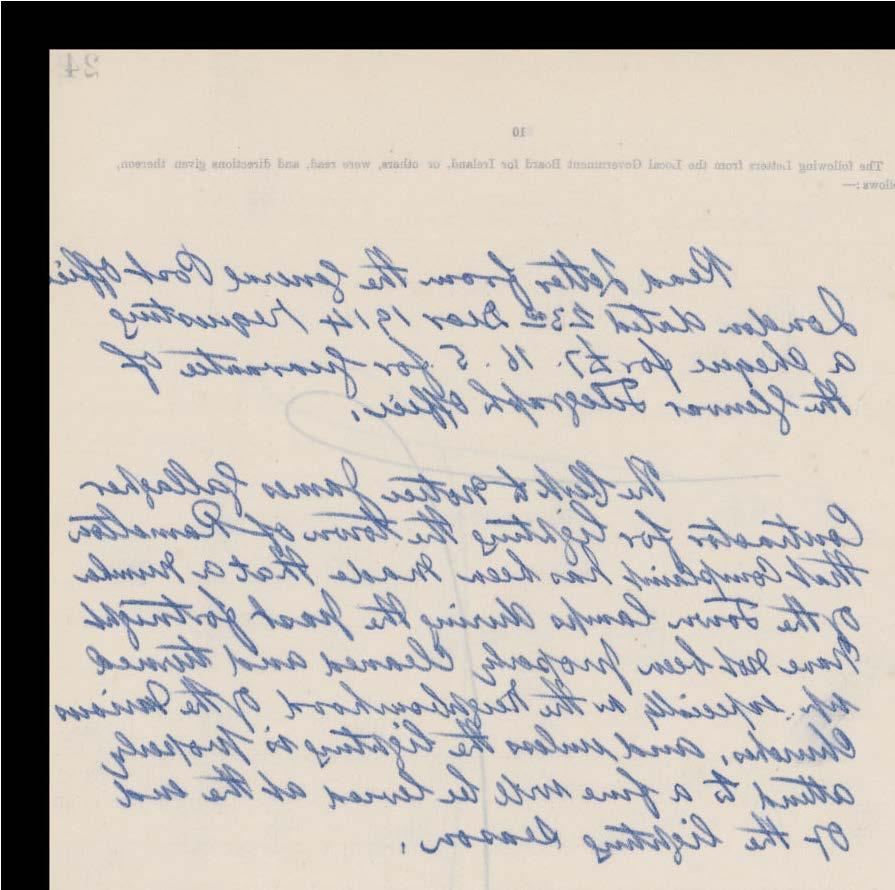 24
10
The following Letters from the Local Government Board for Ireland, or others, were read, and directions given thereon,
ollows:—
Read Letter from the General Post Offic
London dated 23rd Decr 1914 requesting
a cheque for £7. 16. 5 for guarantee of
the Glenvar Telegraph Office.
The Clerk to notice James Gallagher
Contractor for lighting the Town of Ramelton
that Complaint has been made that a numbe
of the Town lamps during the past fortnight
have not been properly cleaned and turned
up, specially in the neighbourhood of the various
Churches, and unless the lighting is properly
attend to a fine will be levied at the end
of the lighting season.